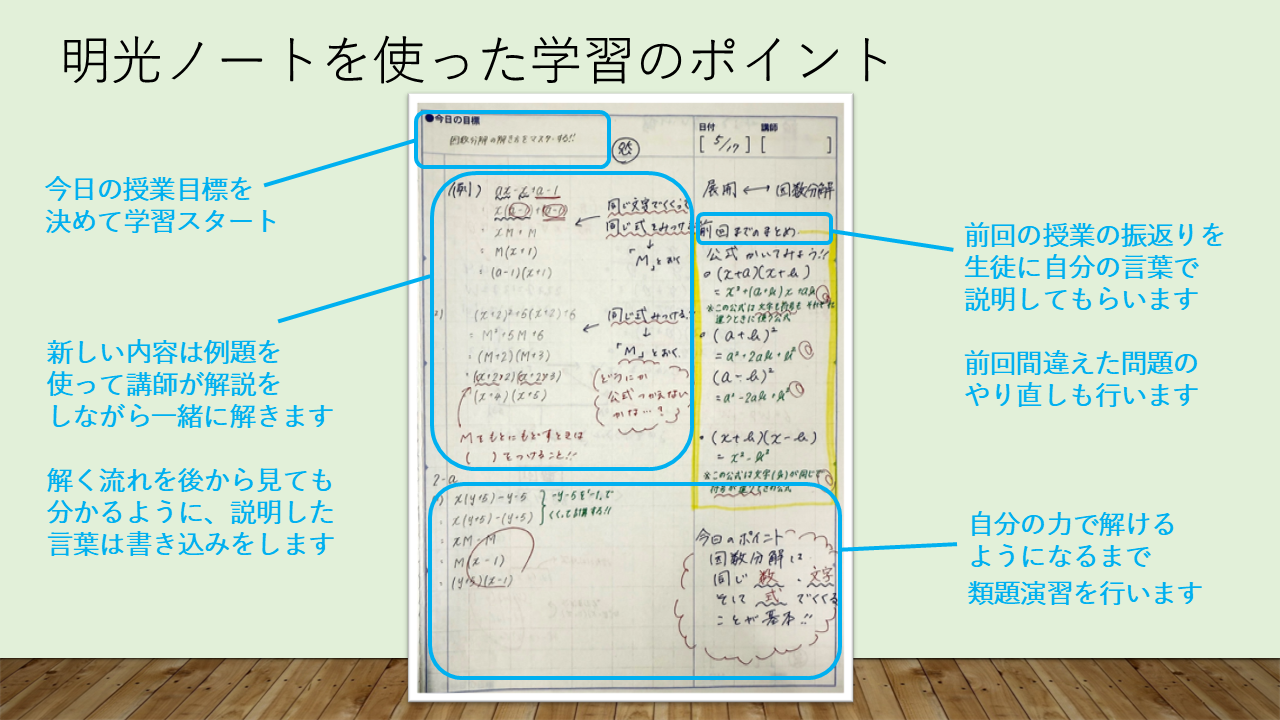 明光ノートを使った学習のポイント
今日の授業目標を
決めて学習スタート
新しい内容は例題を
使って講師が解説を
しながら一緒に解きます
解く流れを後から見ても
分かるように、説明した
言葉は書き込みをします
●今日の目標
因数分解の解き方をマスターする!!
日付
講師
[ 5/17 ] [ ]
(例) ax-x+a-1
= x(a-1)+(a-1)
= xM+M
= M(x+1)
= (a-1)(x+1)
同じ文字でくくって
同じ式をみつける
↓
「M」とおく
2) (x+2)²+5(x+2)+6
= M²+5M+6
= (M+2)(M+3)
= (x+2+2)(x+2+3)
(x+4)(x+5)
同じ式みつける!!
↓
「M」とおく
(どうにか
公式つかえない
かな…?)
Mをもとにもどすときは
( )をつけること!!
2-a
x(y+5)-y-5
= x(y+5)-(y+5)
= xM-M
= M(x-1)
= (y+5)(x-1)
-y-5を
くくって計算する!!
展開 ⟷ 因数分解
前回までのまとめ
公式かいてみよう!!
(x+a)(x+b)
= x²+(a+b)x+ab
※この公式は文字も符号もそれぞれ
違うときに使う公式
(a+b)²
= a²+2ab+b²
(a-b)²
= a²-2ab+b²
(x+b)(x-b)
= x²-b²
※この公式は文字(b)が同じで
符号が違うときの公式
今日のポイント
因数分解は
同じ 数 、文字
そして 式 でくくる
ことが基本!!
前回の授業の振返りを
生徒に自分の言葉で
説明してもらいます
前回間違えた問題の
やり直しも行います
自分の力で解ける
ようになるまで
類題演習を行います